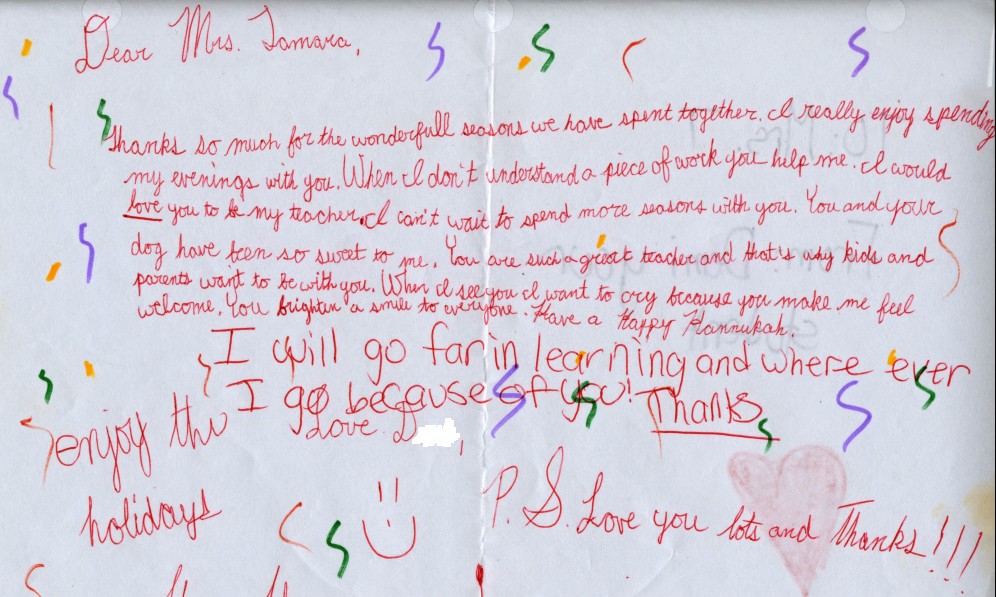 Dear Mrs. Tamara,
Thanks so much for the wonderfull seasons we have spent together. I really enjoy spending
my evenings with you. When I don't understand a piece of work you help me. I would
love you to be my teacher. I can't wait to spend more seasons with you. You and your
dog have been so sweet to me. You are such a great teacher and that's why kids and
parents want to be with you. When I see you I want to cry because you make me feel
welcome. You brighten a smile to everyone. Have a Happy Hannukah.
I will go far in learning and where ever
I go because of you! Thanks
Love D
enjoy the
holidays
P. S. Love you lots and Thanks!!!